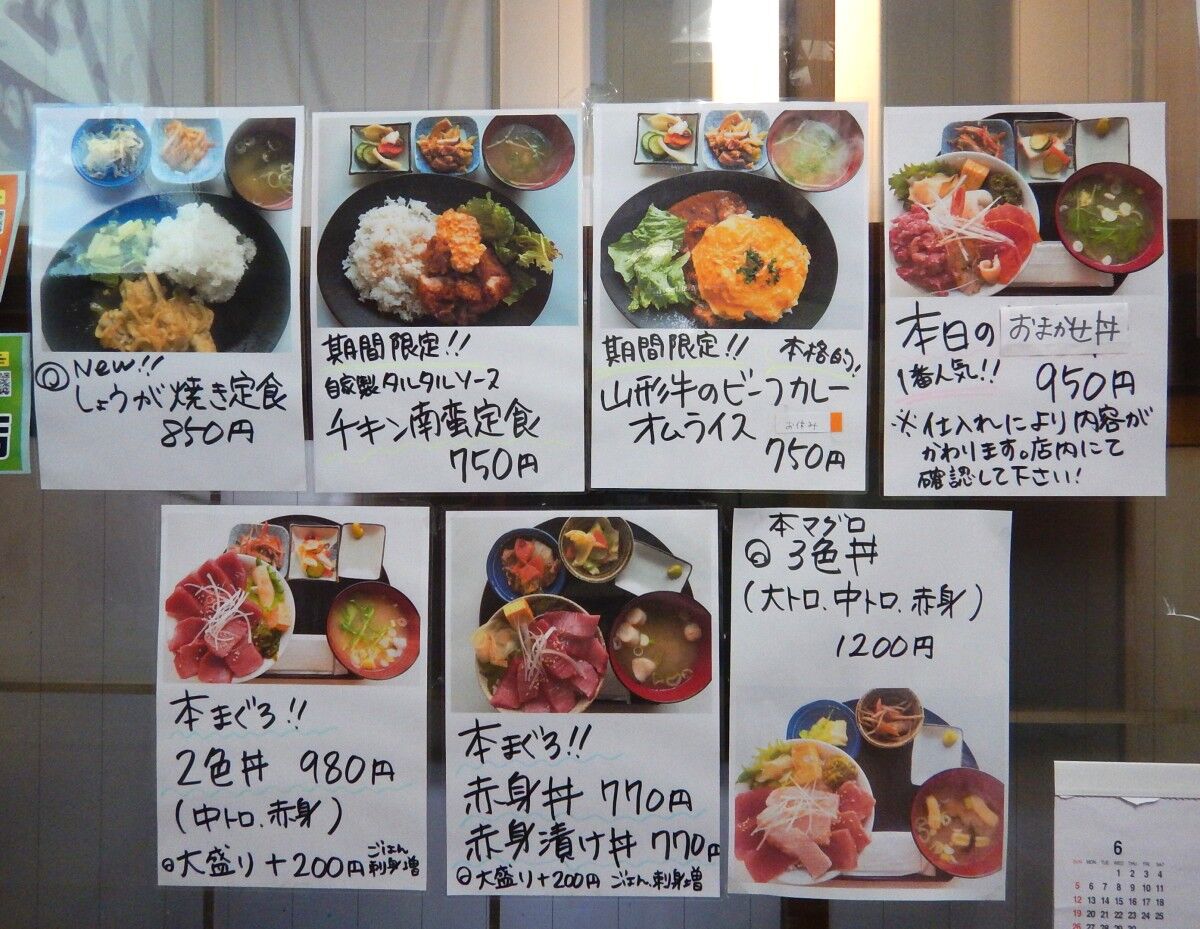 New!!
しょうが焼き定食
850円
期間限定!!
自家製タルタルソース
チキン南蛮定食
750円
期間限定!! 本格的!
山形牛のビーフカレー
オムライス
お休み
750円
本日の おまかせ丼
1番人気!! 950円
※仕入れにより内容が
かわります。店内にて
確認して下さい!
本まぐろ!!
2色丼 980円
(中トロ、赤身)
大盛り+200円 ごはん
刺身増
本まぐろ!!
赤身丼 770円
赤身漬け丼 770円
大盛り+200円 ごはん、刺身増
本マグロ
3色丼
(大トロ、中トロ、赤身)
1200円
6
SUN MON TUE WED THU FRI SAT
1 2 3 4
5 6 7 8 9 10 11
12 13 14 15 16 17 18
19 20 21 22 23 24 25
26 27 28 29 30